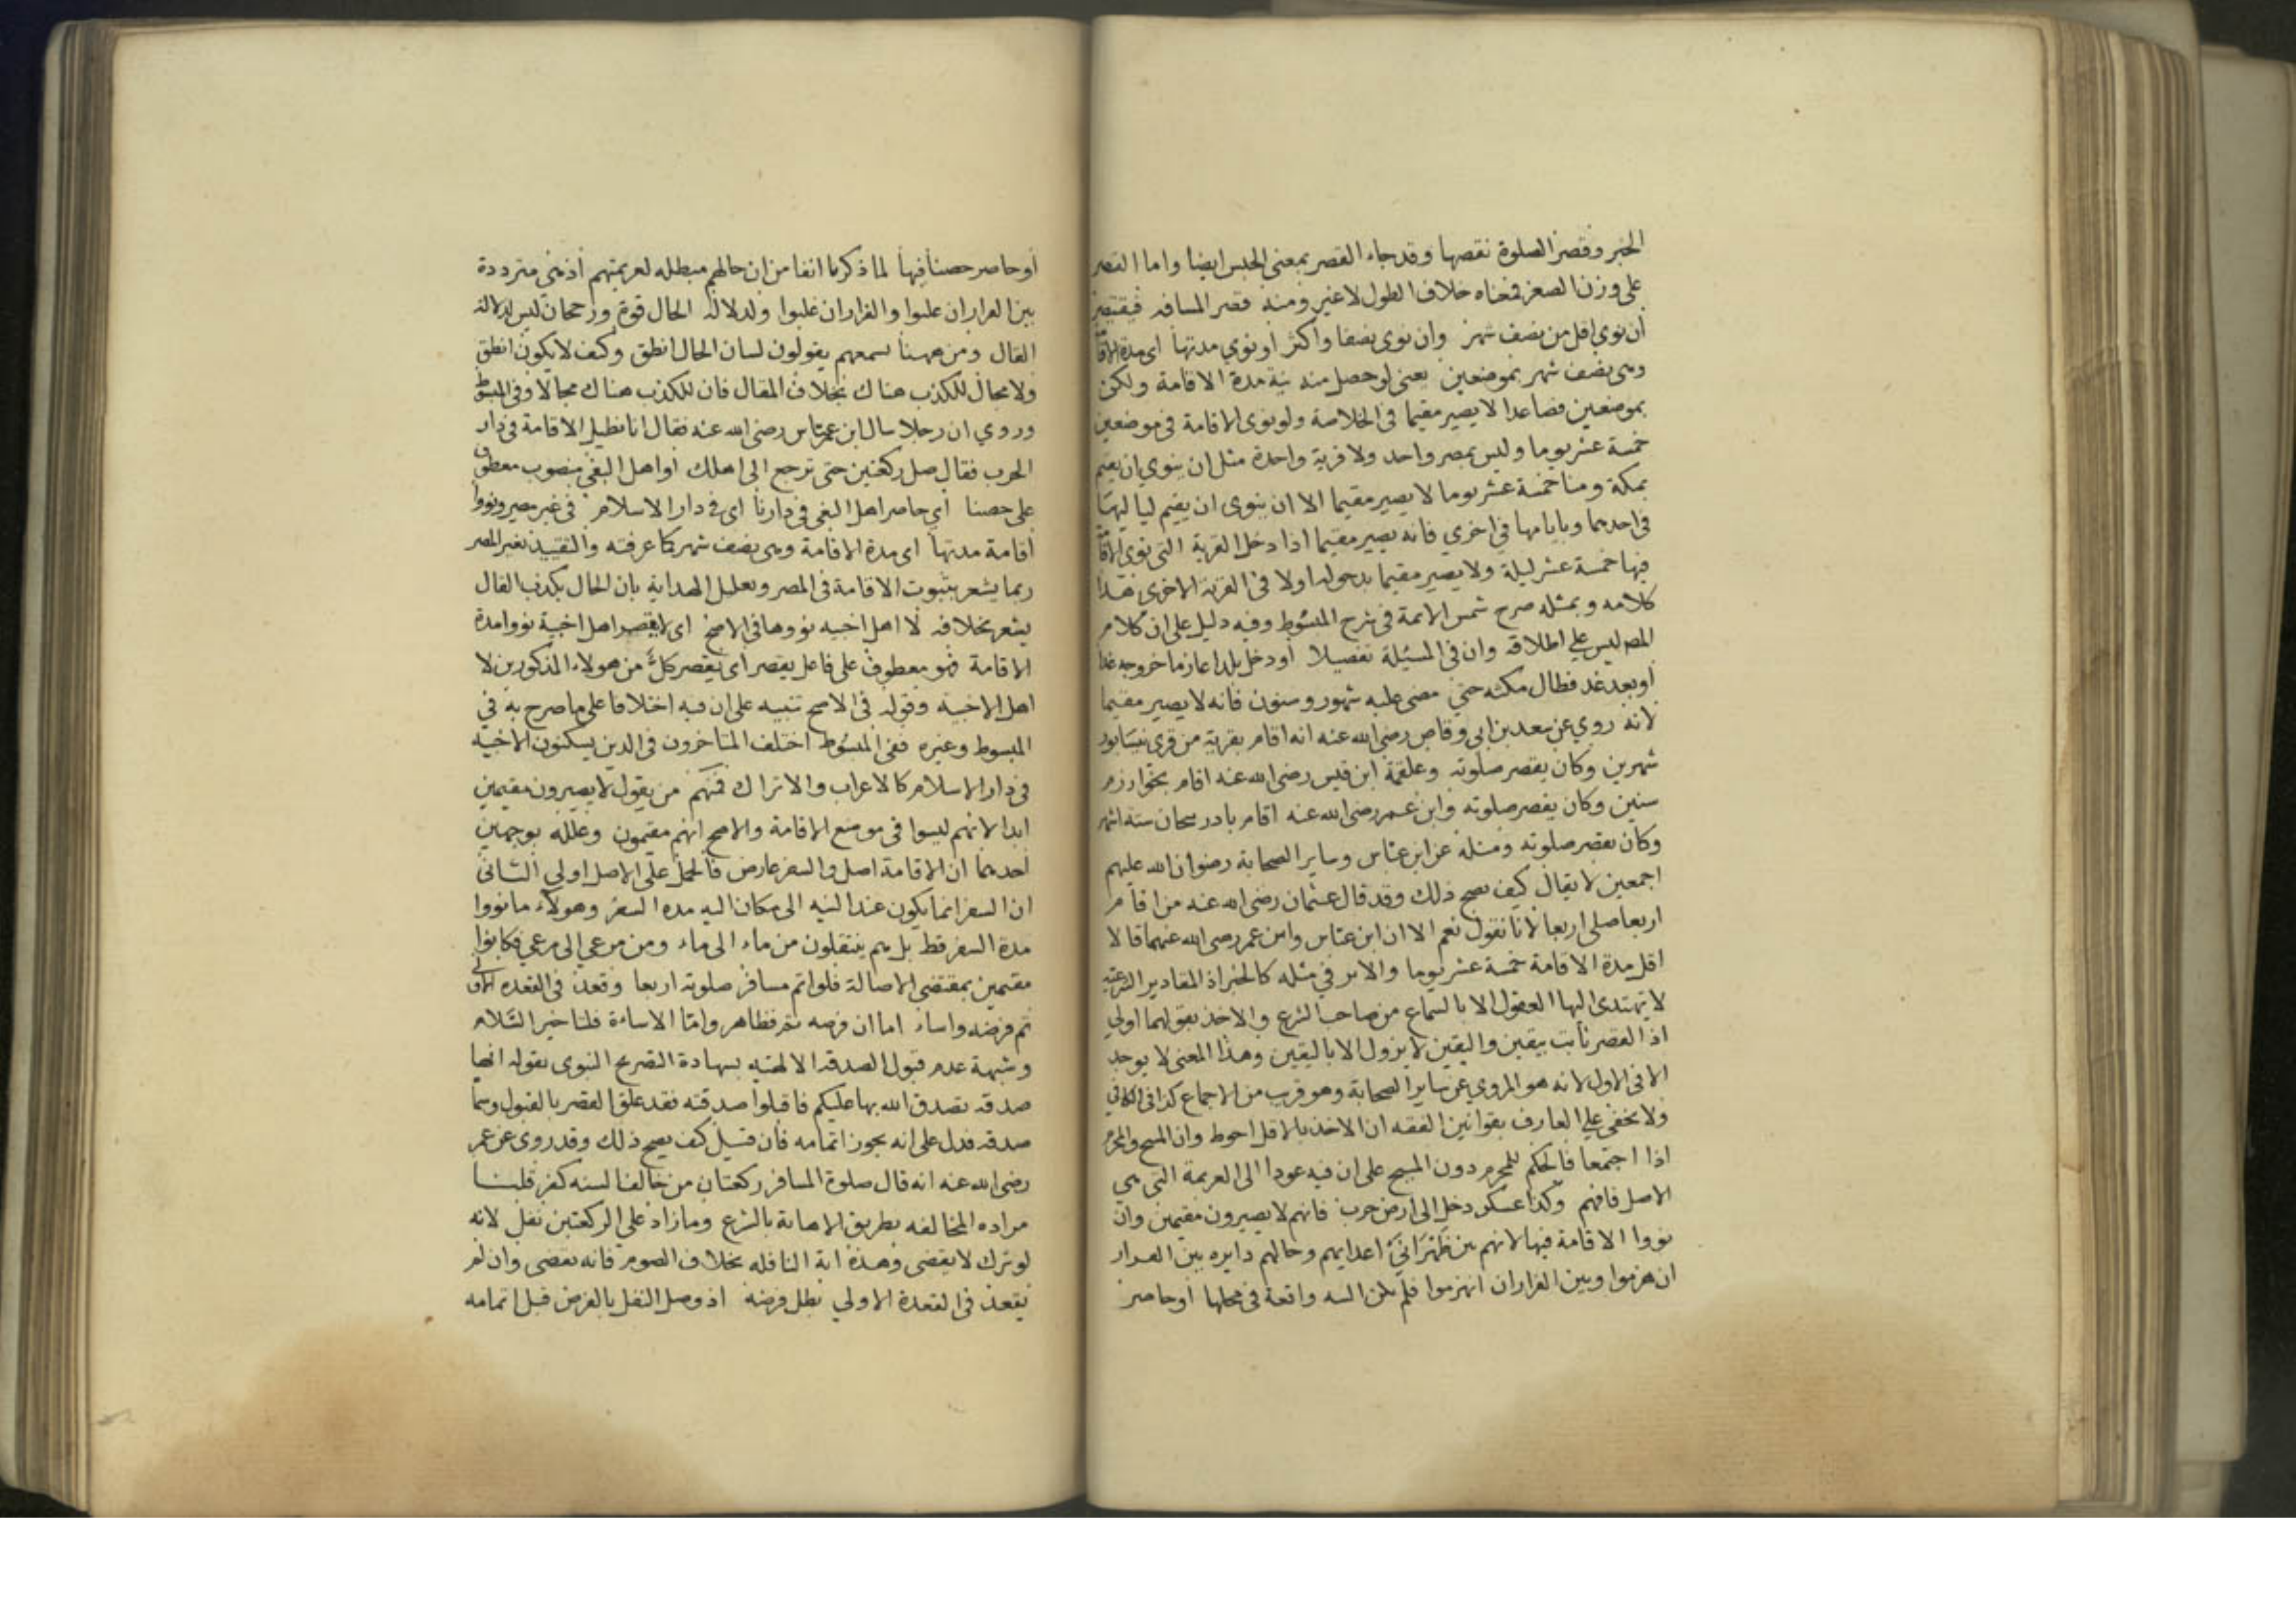 الخبر وقصر الصلوة نقصها وقد جاء القصر بمعنى الحبس ايضا واما القصر
على وزن الصغر فمعناه خلاف الطول لا غير ومنه قصر المسافر فيقتصر
ان نوي اقل من نصف شهر وان نوى نصفا واكثر او نوي مدتها اى مدة الاقامة
وهى نصف شهر بموضعين يعنى لو حصل منه نية مدة الاقامة ولكن
بموضعين فصاعدا لا يصير مقيما فى الخلاصة ولو نوى الاقامة فى موضعين
خمسة عشر يوما وليس بمصر واحد ولا قرية واحدة مثل ان ينوي ان يقيم
بمكة ومنا خمسة عشر يوما لا يصير مقيما الا ان ينوى ان يقيم لياليها
فى احدهما وبايامها في اخري فانه يصير مقيما اذا دخل القرية التى نوى الاقامة
فيها خمسة عشر ليلة ولا يصير مقيما بدخوله اولا فى القرية الاخرى هذا
كلامه وبمثله صرح شمس الائمة فى شرح المبسوط وفيه دليل على ان كلام
المص ليس علي اطلاقه وان فى المسئلة تفصيلا او دخل بلدا عازما خروجه غدا
او بعد غد فطال مكثه حتي مضى عليه شهور وسنون فانه لا يصير مقيما
لانه روي عن سعد بن ابى وقاص رضى الله عنه انه اقام بقرية من قرى نيسابور
شهرين وكان يقصر صلوته وعلقمة ابن قيس رضى الله عنه اقام بخوارزم
سنين وكان يقصر صلوته وابن عمر رضى الله عنه اقام بادربيجان ستة اشهر
وكان يقصر صلوته ومثله عن ابن عباس وساير الصحابة رضوان الله عليهم
اجمعين لا يقال كيف يصح ذلك وقد قال عثمان رضى الله عنه من اقام
اربعا صلى اربعا لانا نقول نعم الا ان ابن عباس وابن عمر رضى الله عنهما قالا
اقل مدة الاقامة خمسة عشر يوما والاثر في مثله كالخبر اذ المقادير الشرعية
لا يهتدى اليها العقول الا بالسماع من صاحب الشرع والاخذ بقولهما اولي
اذ القصر ثابت بيقين واليقين لا يزول الا باليقين وهذا المعنى لا يوجد
الا فى الاول لانه هو المروي عن ساير الصحابة وهو قرب من الاجماع كذا فى الكافي
ولا يخفى علي العارف بقوانين الفقه ان الاخذ بالاقل احوط وان المبيح والمحرم
اذا اجتمعا فالحكم للمحرم دون المبيح على ان فيه عودا الى العزيمة التى هي
الاصل فافهم وكذا عسكر دخل الى ارض حرب فانهم لا يصيرون مقيمين وان
نووا الاقامة فيها لانهم بين ظهرانى اعدايهم وحالهم دايره بين القرار
ان هزموا وبين الفرار ان انهزموا فلم يكن النية واقعة فى محلها او حاصر
او حاصر حصنا فيها لما ذكرنا انفا من ان حالهم مبطله لعزيمتهم اذ هي مترددة
بين القرار ان غلبوا والفرار ان غلبوا ولدلالة الحال قوة ورجحان ليس لدلالة
القال ومن ههنا سمعهم يقولون لسان الحال انطق وكيف لا يكون انطق
ولا مجال للكذب هناك بخلاف المقال فان للكذب هناك مجالا وفى المبسوط
وروي ان رجلا سال ابن عباس رضى الله عنه فقال انا نطيل الاقامة فى دار
الحرب فقال صل ركعتين حتى ترجع الى اهلك او اهل البغي منصوب معطوف
على حصنا اي حاصر اهل البغى فى دارنا اى فى دار الاسلام فى غير مصر ونووا
اقامة مدتها اى مدة الاقامة وهى نصف شهر كما عرفته والتقييد بغير المصر
ربما يشعر بثبوت الاقامة فى المصر وتعليل الهداية بان الحال يكذب القال
يشعر بخلافه لا اهل اخبيه نووها فى الاصح اى لا يقصر اهل اخبية نووا مدة
الاقامة فهو معطوف على فاعل يقصر اى يقصر كل من هولاء المذكورين لا
اهل الاخبية وقوله فى الاصح تنبيه على ان فيه اختلافا على ما صرح به في
المبسوط وغيره ففى المبسوط اختلف المتاخرون فى الدين يسكنون الاخبية
فى دار الاسلام كالاعراب والاتراك فمنهم من يقول لا يصيرون مقيمين
ابدا لانهم ليسوا فى موضع الاقامة والاصح انهم مقيمون وعلله بوجهين
احدهما ان الاقامة اصل والسفر عارض فالحمل على الاصل اولي الثانى
ان السفر انما يكون عند النيه الى مكان اليه مده السفر وهولاء ما نووا
مدة السفر قط بل هم ينتقلون من ماء الى ماء ومن مرعي الى مرعي فكانوا
مقيمين بمقتضى الاصالة فلو اتم مسافر صلوته اربعا وقعد فى القعده الاولى
تم فرضه واساء اما ان فرضه تم فظاهر واما الاساءة فلتاخير السلام
وشبهة عدم قبول الصدقه الالهيه بشهادة التصريح النبوى بقوله انها
صدقه تصدق الله بها عليكم فاقبلوا صدقته فقد علق القصر بالقبول وسما
صدقه فدل على انه يجوز اتمامه فان قيل كيف يصح ذلك وقد روى عن عمر
رضى الله عنه انه قال صلوة المسافر ركعتان من خالف السنه كفر قلنا
مراده المخالفه بطريق الاهانة بالشرع وما زاد علي الركعتين نفل لانه
لو ترك لا يقضى وهذه اية النافله بخلاف الصوم فانه يقضى وان لم
يقعد فى القعدة الاولي بطل فرضه اذ وصل النفل بالفرض قبل اتمامه